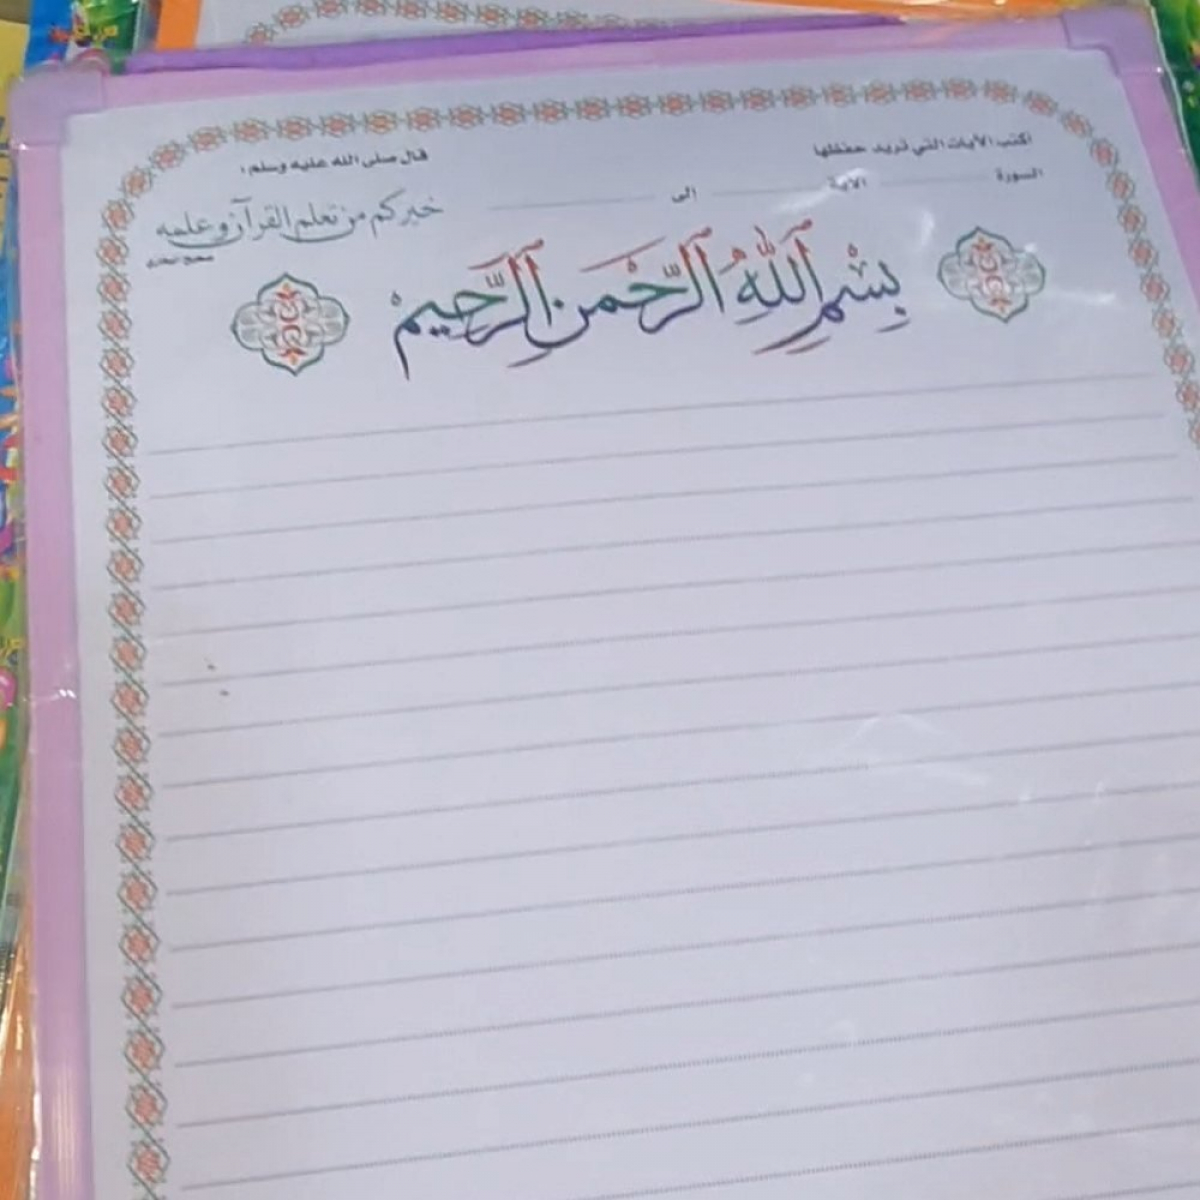 اكتب الآيات التي تريد حفظها
السورة الآية إلى
قال صلى الله عليه وسلم :
خيركم من تعلم القرآن وعلمه
صحيح البخاري
بِسْمِ اللَّهِ الرَّحْمَنِ الرَّحِيمْ